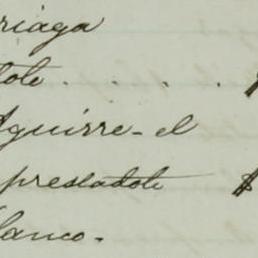 riaga
tote . . . . $
Aguirre - el
prestadote $
lanco.